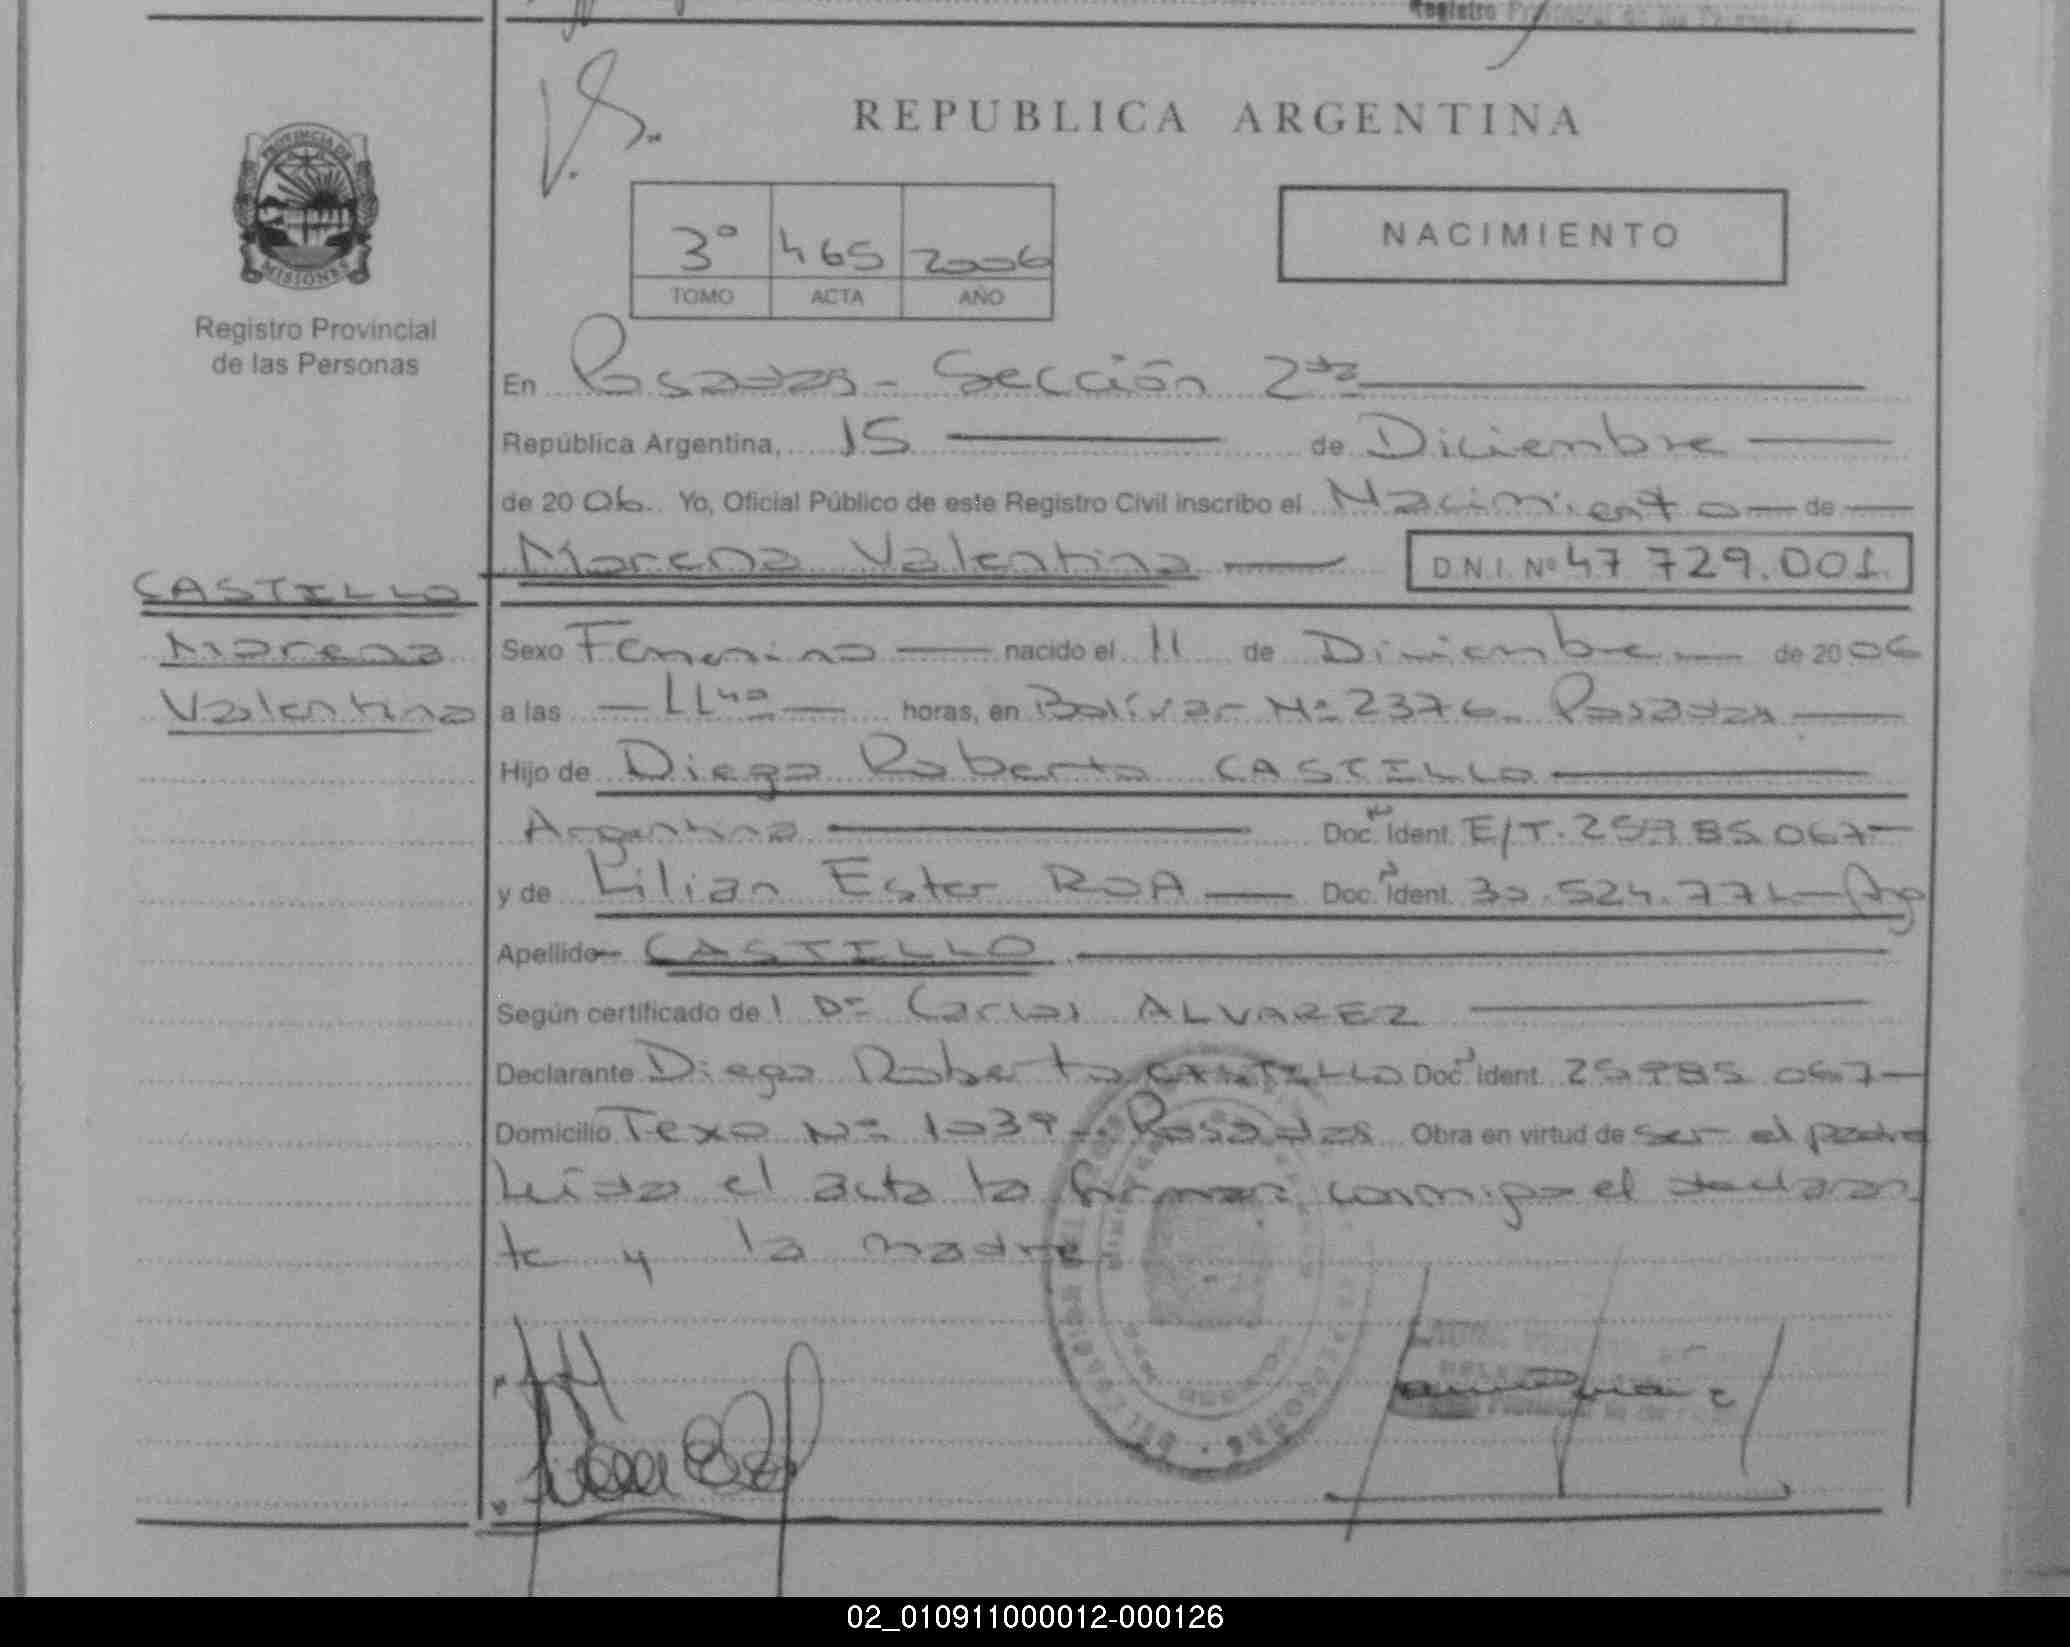 Registro Provincial de las Personas
V.S.
REPUBLICA ARGENTINA
PROVINCIA DE
MISIONES
Registro Provincial
de las Personas
3º 465 2006
TOMO ACTA AÑO
NACIMIENTO
En Posadas - Sección 2da
República Argentina, 15 de Diciembre
de 2006. Yo, Oficial Público de este Registro Civil inscribo el Nacimiento de
Morena Valentina D.N.I. Nº 47 729.001
CASTILLO
Morena
Valentina
Sexo Femenino nacido el 11 de Diciembre de 2006
a las 11 40 horas, en Bolívar Nº 2376 - Posadas
Hijo de Diego Roberto CASTILLO
Argentina Doc. Ident. E/T. 25.985.067
y de Lilian Ester ROA Doc. Ident. 30.524.771 Arg
Apellido CASTILLO
Según certificado de l Dr Carlos ALVAREZ
Declarante Diego Roberto CASTILLO Doc. Ident. 25.985.067
Domicilio Texo Nº 1039 - Posadas Obra en virtud de ser el padre
Leída el acta la firman conmigo el declaran
te y la madre
02_010911000012-000126